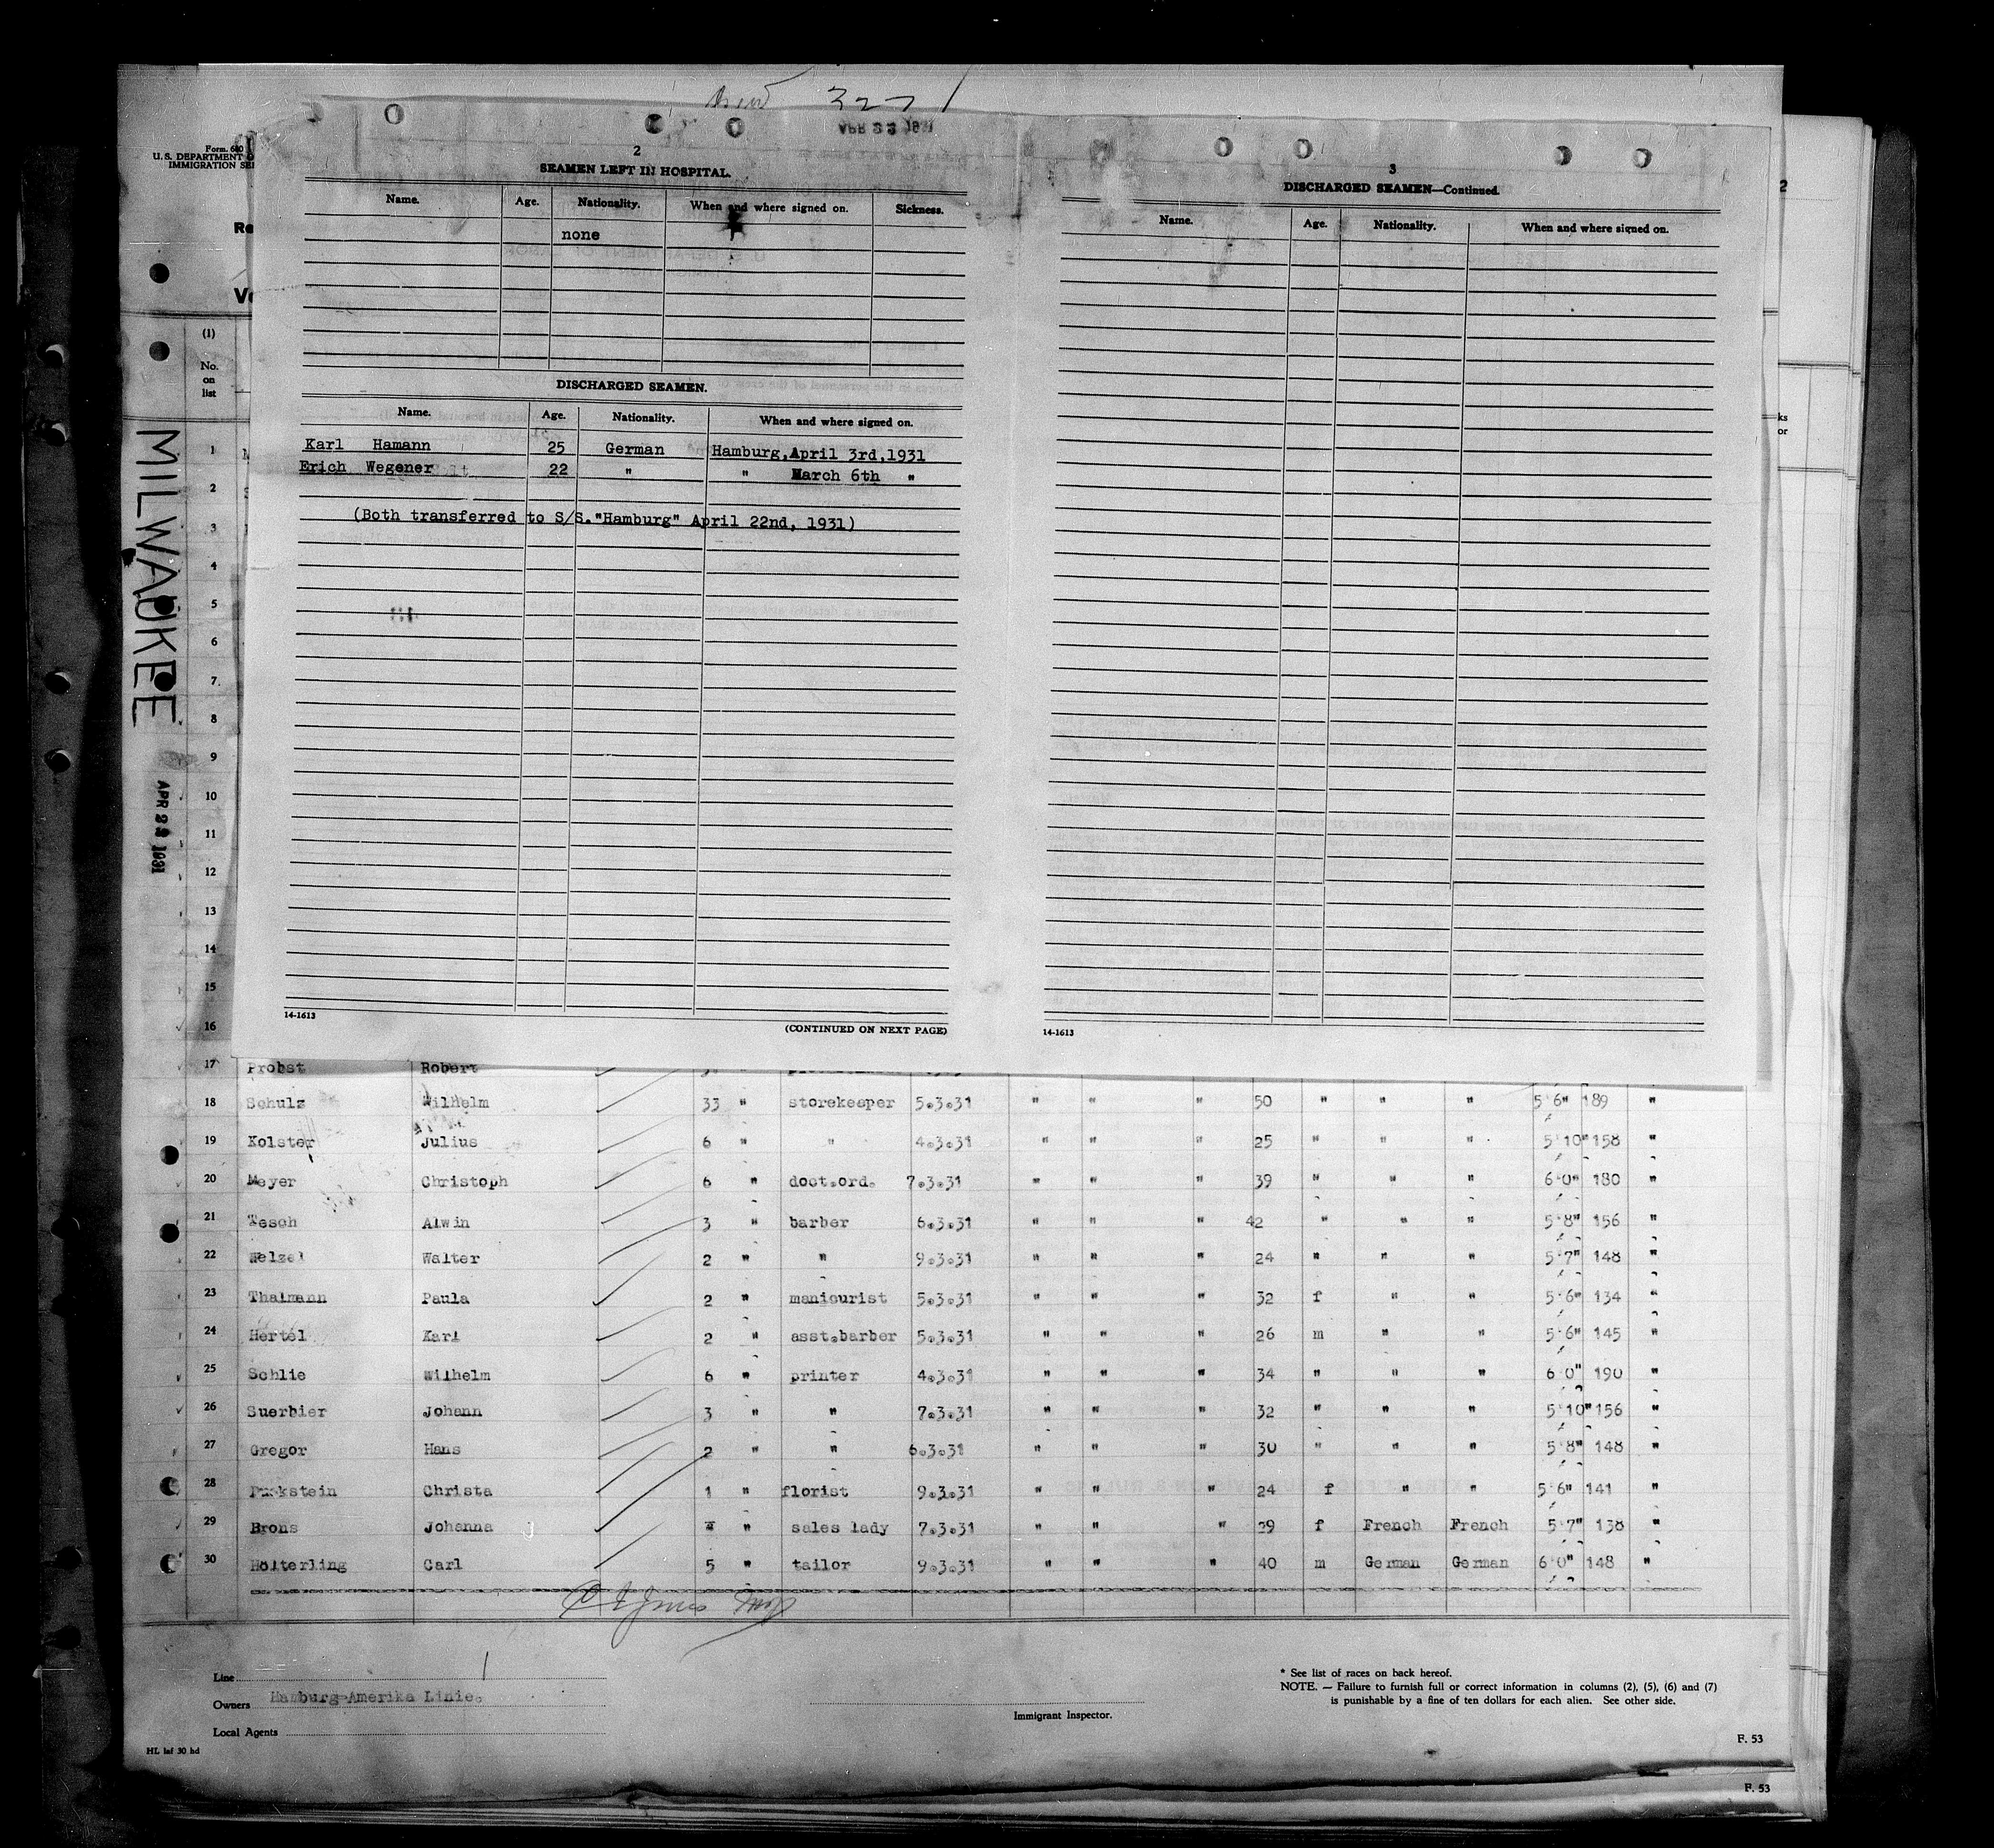 3271
APR 23 1931
Form. 680
U.S. DEPARTMENT O
IMMIGRATION SE
Re
Ve
2
SEAMEN LEFT IN HOSPITAL.
Name. Age. Nationality. When and where signed on. Sickness.
none
DISCHARGED SEAMEN.
Name. Age. Nationality. When and where signed on.
Karl Hamann 25 German Hamburg,April 3rd,1931
Erich Wegener 22 " " March 6th "
(Both transferred to S/S."Hamburg" April 22nd, 1931)
14-1613
(CONTINUED ON NEXT PAGE)
3
DISCHARGED SEAMEN—Continued.
Name. Age. Nationality. When and where signed on.
14-1613
2
ks
or
(1)
No.
on
list
MILWAUKEE
APR 23 1931
1
2
3
4
5
6
7.
8
9
10
11
12
13
14
15
16
17 Probst Robert
18 Schulz Wilhelm 33 " storekeeper 5.3.31 " " " 50 " " " 5'6" 189 "
19 Kolster Julius 6 " " 4.3.31 " " " 25 " " " 5'10" 158 "
20 Meyer Christoph 6 " doct.ord. 7.3.31 " " " 39 " " " 6'0" 180 "
21 Tesch Alwin 3 " barber 6.3.31 " " " 42 " " " 5'8" 156 "
22 Welzel Walter 2 " " 9.3.31 " " " 24 " " " 5'7" 148 "
23 Thalmann Paula 2 " manicurist 5.3.31 " " " 32 f " " 5'6" 134 "
24 Hertel Karl 2 " asst.barber 5.3.31 " " " 26 m " " 5'6" 145 "
25 Schlie Wilhelm 6 " printer 4.3.31 " " " 34 " " " 6'0" 190 "
26 Suerbier Johann 3 " " 7.3.31 " " " 32 " " " 5'10" 156 "
27 Gregor Hans 2 " " 6.3.31 " " " 30 " " " 5'8" 148 "
28 Christa 1 " florist 9.3.31 " " " 24 f " " 5'6" 141 "
29 Brons Johanna " sales lady 7.3.31 " " " 29 f French French 5'7" 138 "
30 Holterling Carl 5 " tailor 9.3.31 " " " 40 m German German 6'0" 148 "
Line
Owners Hamburg-Amerika Linie.
Local Agents
HL laf 30 hd
Immigrant Inspector.
* See list of races on back hereof.
NOTE. — Failure to furnish full or correct information in columns (2), (5), (6) and (7)
is punishable by a fine of ten dollars for each alien. See other side.
F. 53
F. 53